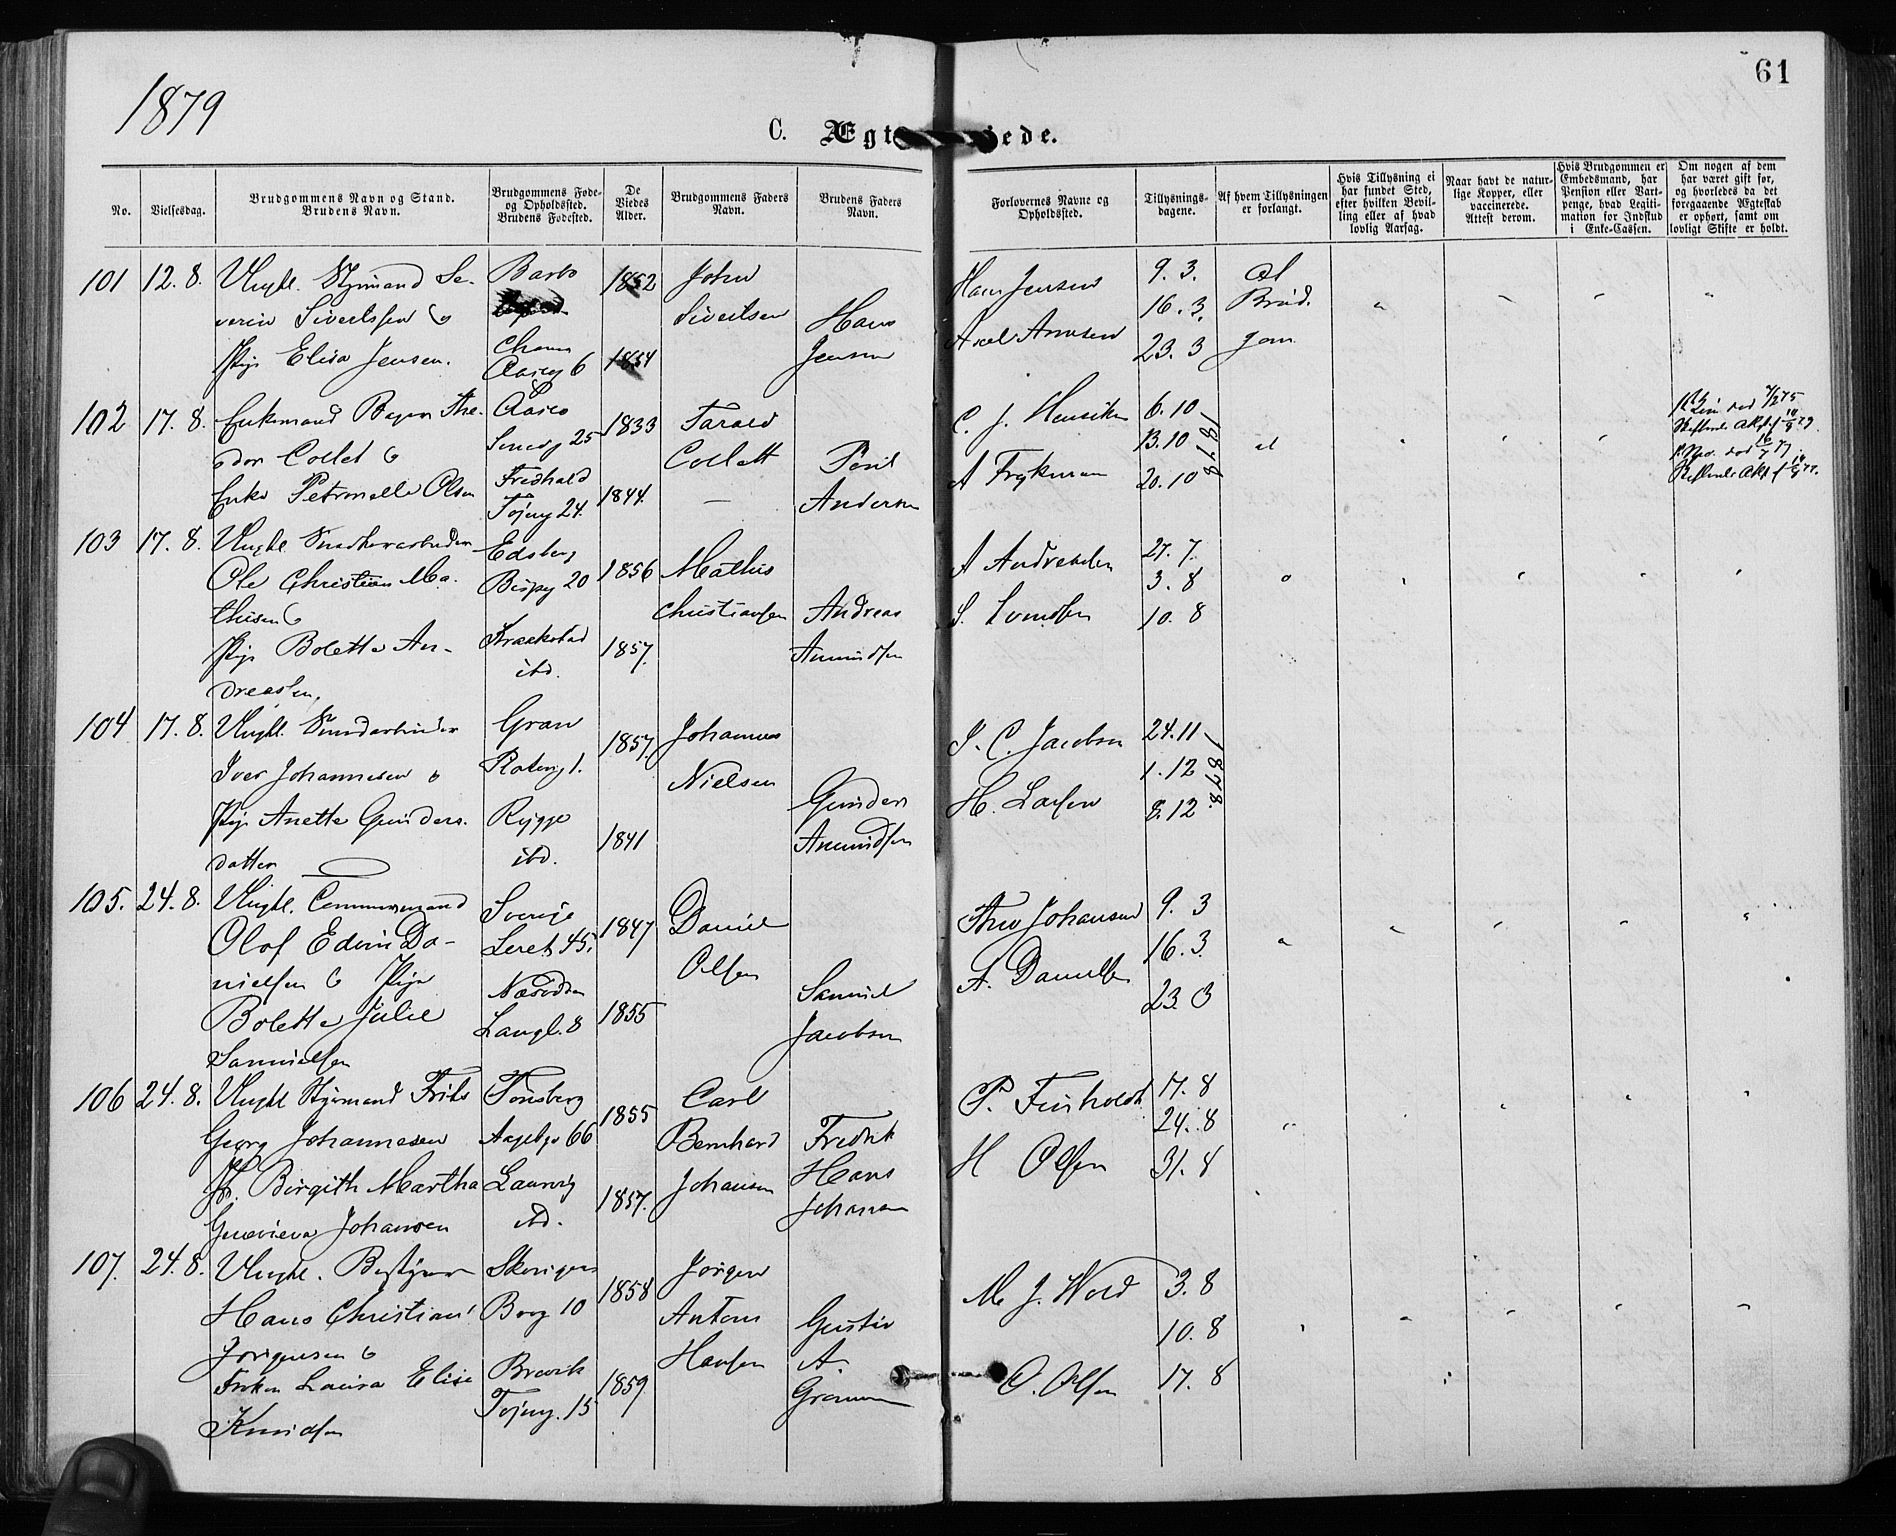 1879
61
C. Ægt
iede.
No.
Vielsesdag.
Brudgommens Navn og Stand.
Brudens Navn.
Brudgommens Føde-
og Opholdssted.
Brudens Fødested.
De
Viedes
Alder.
Brudgommens Faders
Navn.
Brudens Faders
Navn.
Forlovernes Navne og
Opholdssted.
Tillysnings-
dagene.
Af hvem Tillysningen
er forlangt.
Hvis Tillysning ei
har fundet Sted,
efter hvilken Bevil-
ling eller af hvad
lovlig Aarsag.
Naar havt de natur-
lige Kopper, eller
vaccinerede.
Attest derom.
Hvis Brudgommen er
Embedsmand, har
Pension eller Vart-
penge, hvad Legiti-
mation for Indskud
i Enke-Cassen.
Om nogen af dem
har været gift før,
og hvorledes da det
foregaaende Ægteskab
er ophørt, samt om
lovligt Skifte er holdt.
101 12. 8. Ungk. Styrmand Se-
verin Sivertsen &
Pige Elisa Jensen.
Barbo
6
1852
1854
John
Sivertsen
Hans
Jensen
Hans Jensen
9. 3.
16. 3.
23. 3
af
Brud.
gom
102 17. 8. Enkemand Bager The-
odor Collet &
Enke Petronelle Olsen
25
Fredhald
Tøjeng 24.
1833
1844.
Collett
—
Poul
Andersen
C. J. Henriksen
A Frykman
6. 10
13. 10
20. 10
1878
103 17. 8. Ungk. Snedkerarbeider
Ole Christian Ma-
thisen &
Pige Bolette An-
dreassen.
Edsberg
20
Kraakstad
ibd.
1856
1857.
Mathis
Christiansen
Andreas
Amundsen
A Andreassen
S. Svendsen
27. 7.
3. 8
10. 8
104 17. 8. Ungk.
Iver Johannesen &
Pige Anette Gunders-
datter
Gran
1.
Rygge
ibd.
1857.
1841
Johannes
Nielsen
Gunder
Amundsen
C. Jacobsen
H. Larsen
24. 11
1. 12
8. 12
1878.
105. 24. 8. Ungk.
Olof Edvin Da-
nielsen & Pige
Bolette Julie
Samuelsen
Sverige
45.
Næsodden
Langl. 8
1847
1855
Daniel
Olsen
Samuel
Jacobsen
Theo Johansen
A. Danielsen
9. 3
16. 3.
23. 3
106 24. 8. Ungk Styrmand Frits
Georg Johannesen
Birgith Martha
Genovieva Johansen
Tønsberg
66
Laurvig
ibd.
1855
1857.
Carl
Bernhard
Johansen
Fredrik
Hans
Johansen
P. Finholdt
H Olsen
17. 8
24. 8
31. 8
107. 24. 8. Ungk. Bestyrer
Hans Christian
Jørgensen &
Frøken Laura Elise
Knudsen
Borg 10
Brevik
Tøjeng. 15
1858
1859.
Jørgen
Anton
Hansen
Gustav
A.
M J. Wold
O. Olsen
3. 8
10. 8
17. 8